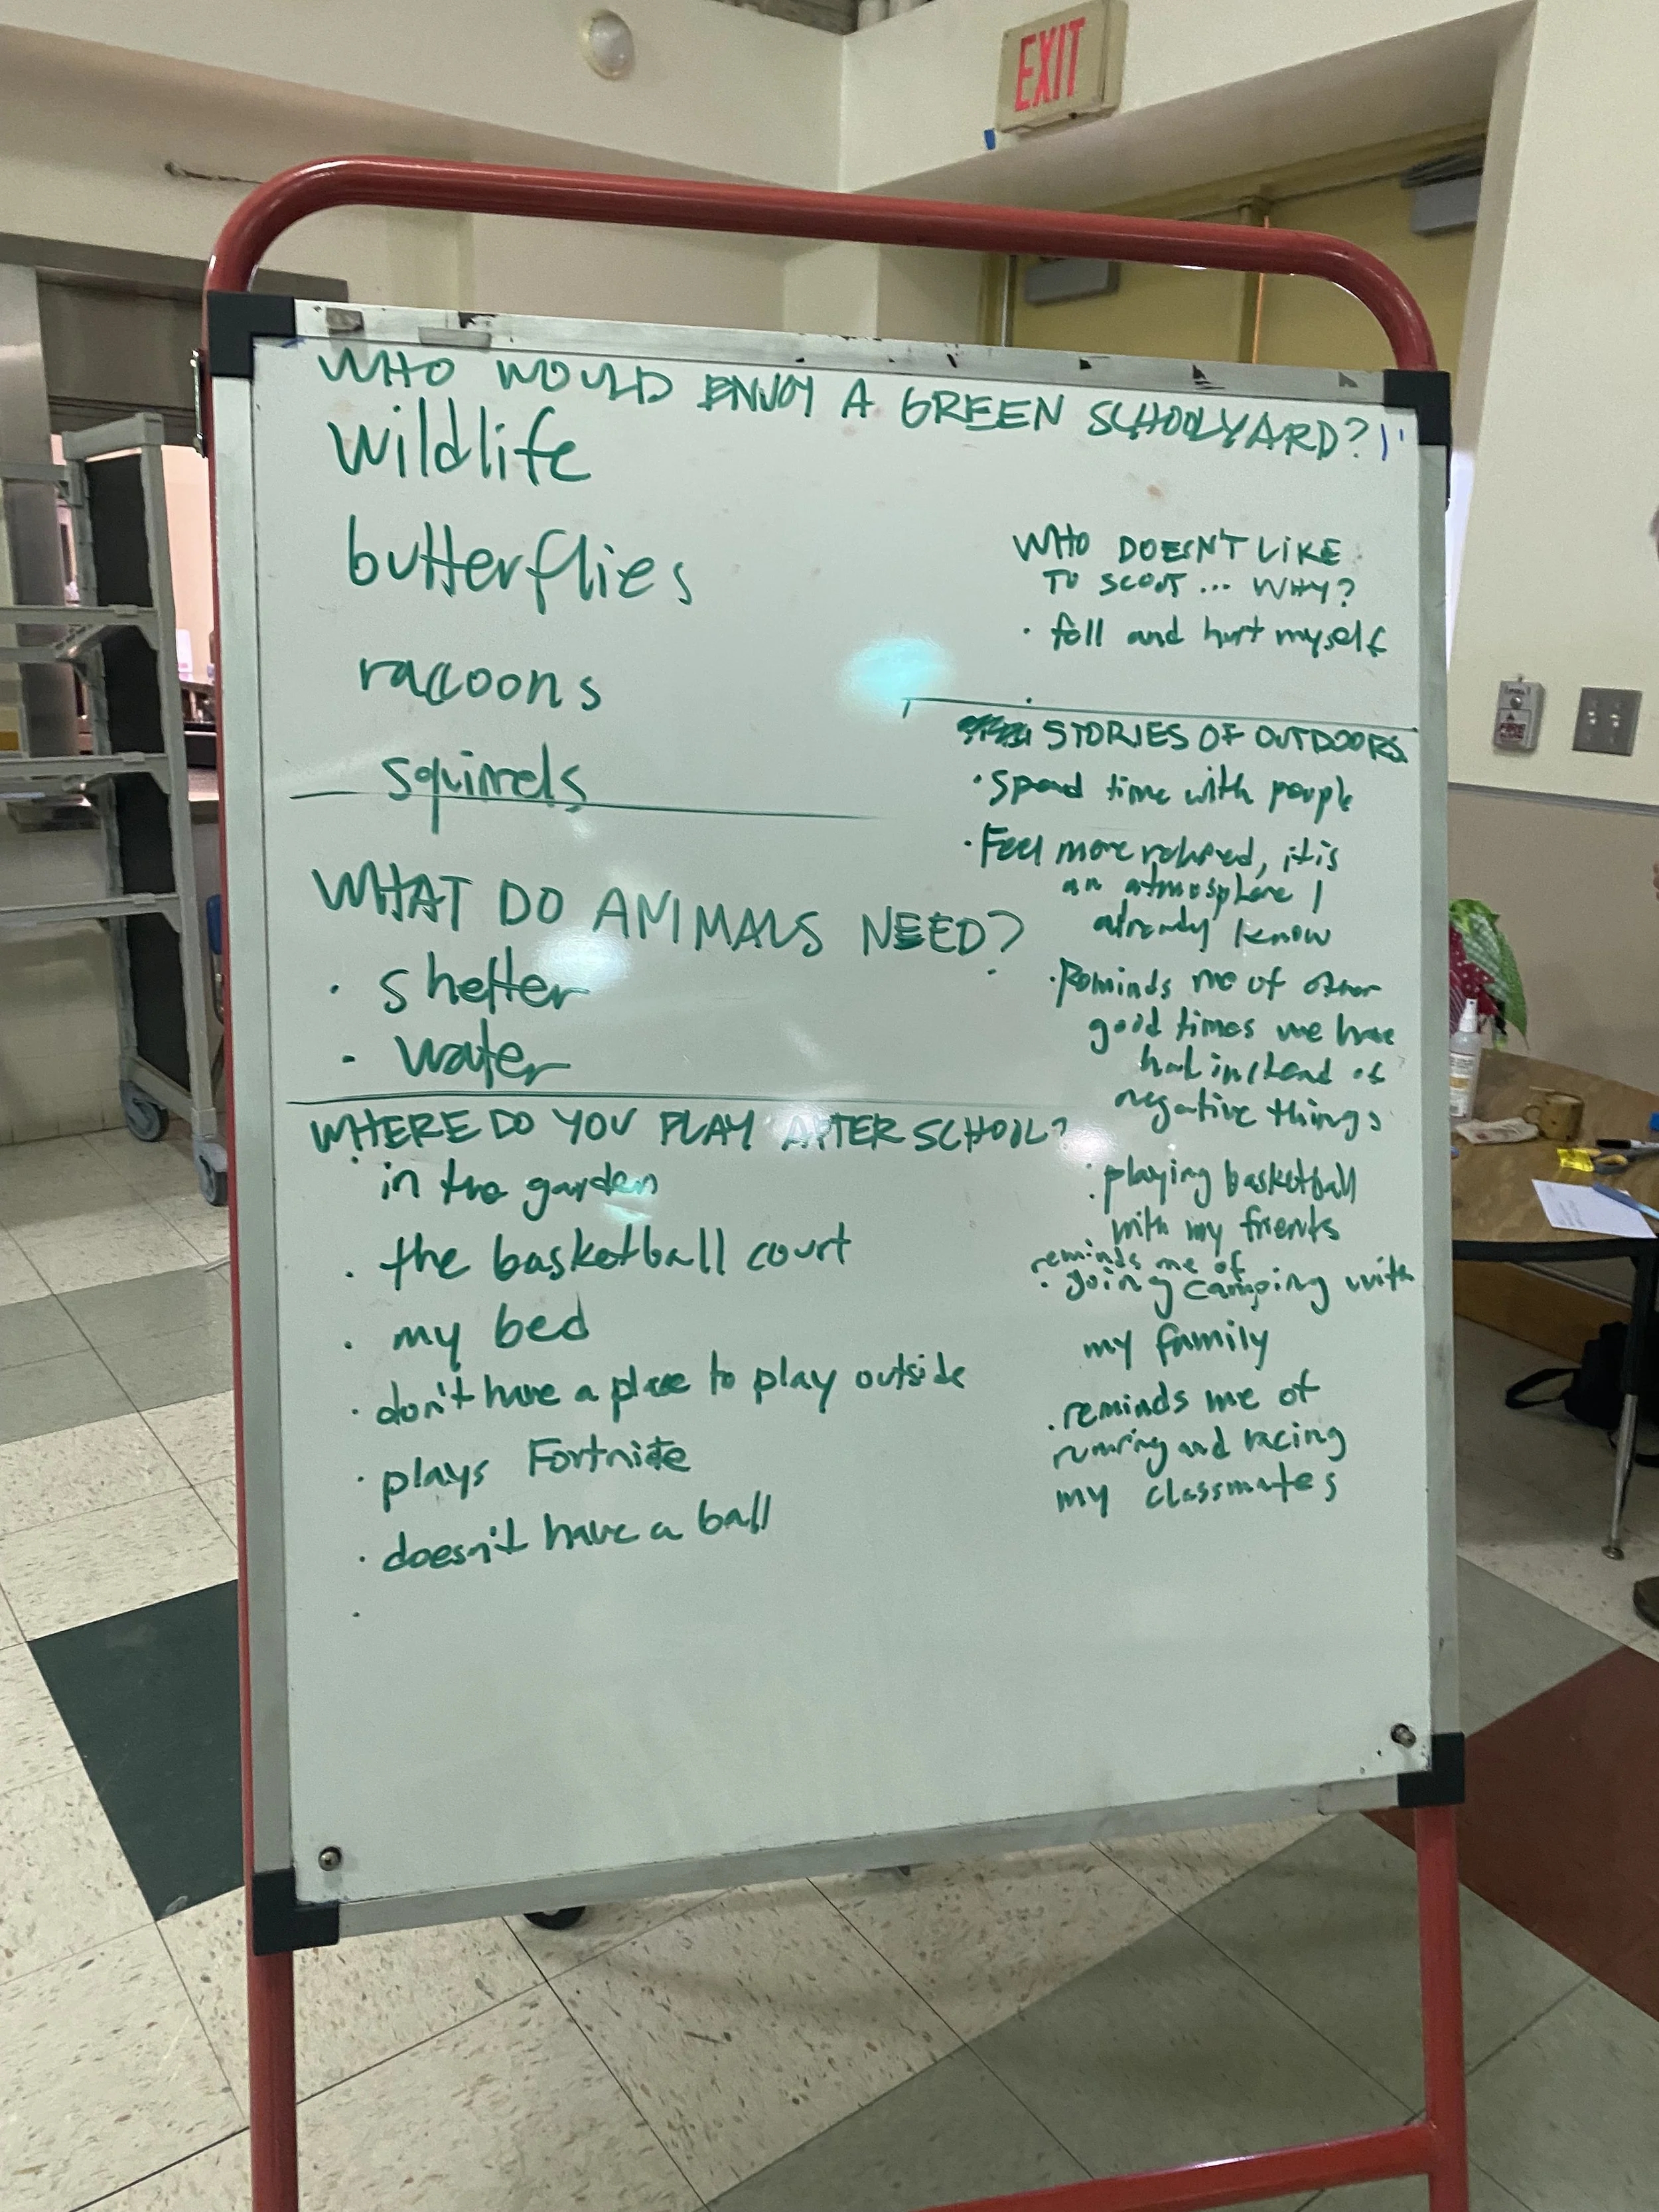 EXIT
WHO WOULD ENJOY A GREEN SCHOOLYARD?
wildlife
butterflies
raccoons
squirrels
WHAT DO ANIMALS NEED?
· shelter
· water
WHERE DO YOU PLAY AFTER SCHOOL?
· in the garden
· the basketball court
· my bed
· don't have a place to play outside
· plays Fortnite
· doesn't have a ball
·
WHO DOESN'T LIKE
TO SCOOT... WHY?
· fall and hurt myself
·
STORIES OF OUTDOORS
· Spend time with people
· Feel more relaxed, it is
an atmosphere I
already know
· Reminds me of other
good times we have
had instead of
negative things
· playing basketball
with my friends
reminds me of
· going camping with
my family
· reminds me of
running and racing
my classmates
PULL
FIRE